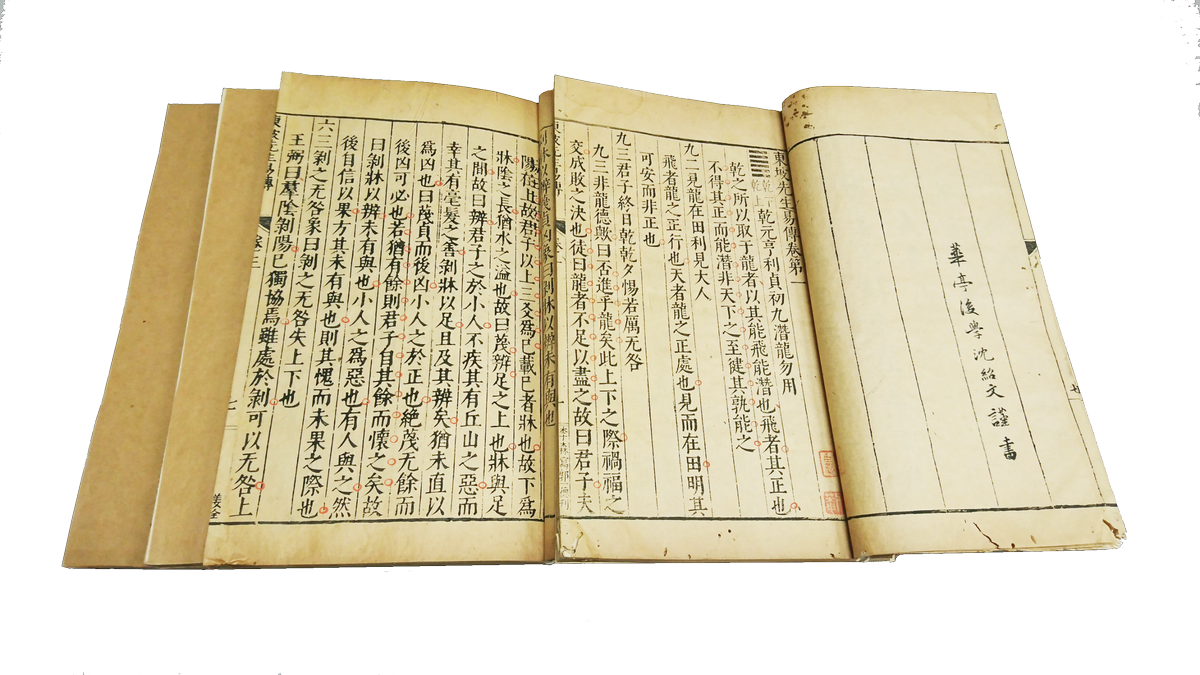 華亭後學沈紹文謹書
東坡先生易傳卷第一
乾元亨利貞初九潛龍勿用
乾之所以取于龍者以其能飛能潛也飛者其正也
不得其正而能潛非天下之至健其孰能之
九二見龍在田利見大人
飛者龍之正行也天者龍之正處也見而在田明其
可安而非正也
九三君子終日乾乾夕惕若厲无咎
九三非龍德歟曰否進乎龍矣此上下之際禍福之
交成敗之決也徒曰龍者不足以盡之故曰君子夫
陽在上故君子以上三爻為已載已者牀也故下為
牀陰之長猶水之溢也故曰蔑辨足之上也牀與足
之間故曰辨君子之於小人不疾其有丘山之惡而
幸其有毫髮之善剥牀以足且及其辨矣猶未直以
為凶也曰蔑貞而後凶小人之於正也絶蔑无餘而
後凶可必也若猶有餘則君子自其餘而懷之矣故
曰剥牀以辨未有與也小人之為惡也有人與之然
後自信以果方其未有與也則其愧而未果之際也
六三剥之无咎象曰剥之无咎失上下也
王弼曰羣陰剥陽已獨協焉雖處於剥可以无咎上
卷三
姜全